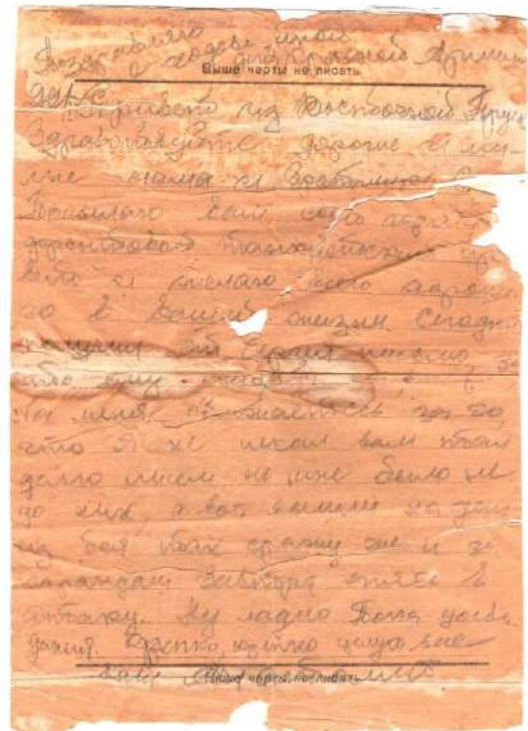 Поздравляю
с годовщиной
Красной Армии
Выше черты не писать.
Привет из Восточной Прус
Здравствуйте дорогие и ми-
лые мама и
Посылаю Вам свой
и желаю всего хороше
го в Вашей жизни Сегодня
получил от Сергея письмо
на меня обижаетесь за то
что я не писал вам так
долго писем но мне было не
до них, а вот вышли на день
из боя так сразу же и за
карандаш Завтра опять в
атаку. Ну ладно Пока досви
дания. Крепко, крепко целую вас
ваш
Ниже черты не писать.